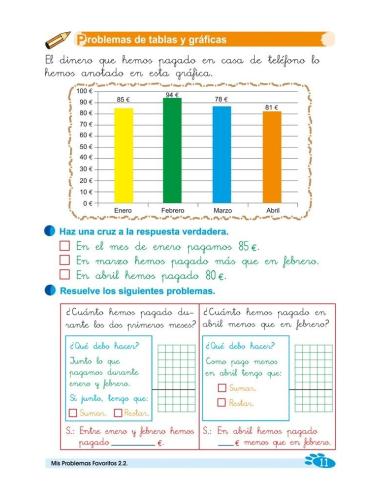 Problemas de tablas y gráficas
El dinero que hemos pagado en casa de teléfono lo
hemos anotado en esta gráfica.
100 €
90 €
80 €
70 €
60 €
50 €
40 €
30 €
20 €
10 €
0 €
85 €
94 €
78 €
81 €
Enero Febrero Marzo Abril
Haz una cruz a la respuesta verdadera.
En el mes de enero pagamos 85 €.
En marzo hemos pagado más que en febrero.
En abril hemos pagado 80 €.
Resuelve los siguientes problemas.
¿Cuánto hemos pagado du-
rante los dos primeros meses?
¿Qué debo hacer?
Junto lo que
pagamos durante
enero y febrero.
Si junto, tengo que:
Sumar. Restar.
S.: Entre enero y febrero hemos
pagado ______ €.
¿Cuánto hemos pagado en
abril menos que en febrero?
¿Qué debo hacer?
Como pago menos
en abril tengo que:
Sumar.
Restar.
S.: En abril hemos pagado
____ € menos que en febrero.
Mis Problemas Favoritos 2.2.
11